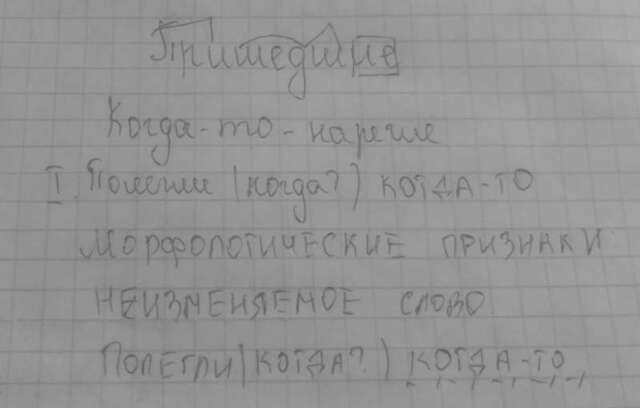 Пришедшие
Когда-то - наречие
I. Полегли (когда?) КОГДА-ТО
МОРФОЛОГИЧЕСКИЕ ПРИЗНАКИ
НЕИЗМЕНЯЕМОЕ СЛОВО
ПОЛЕГЛИ (КОГДА?) КОГДА-ТО